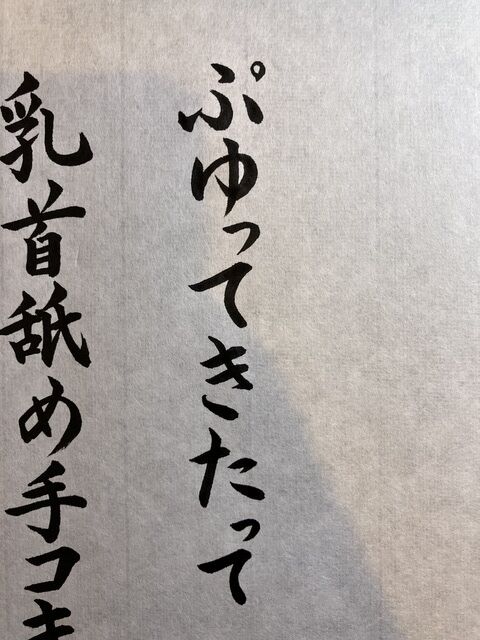 ぷゆってきたって
乳首舐め手コキ